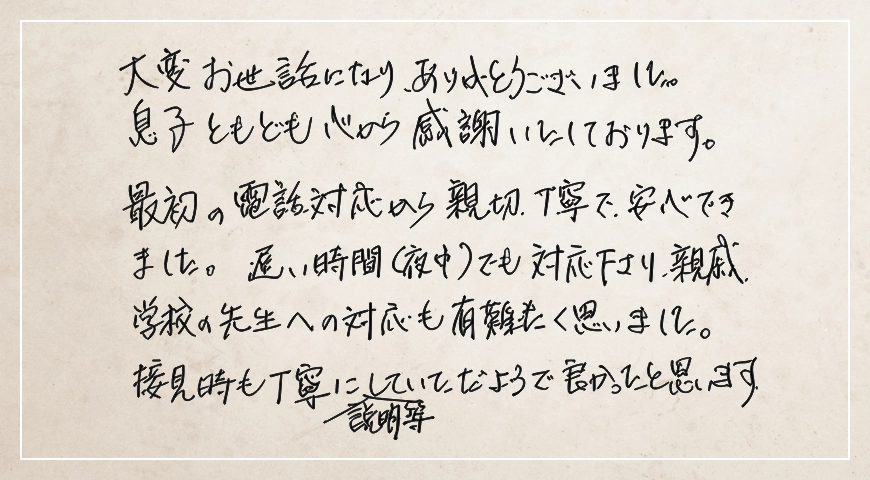 大変お世話になり、ありがとうございました。
息子ともども心から感謝いたしております。
最初の電話対応から親切、丁寧で、安心でき
ました。遅い時間(夜中)でも対応下さり、親戚、
学校の先生への対応も有難たく思いました。
接見時も丁寧にしていただようで良かったと思います
説明等